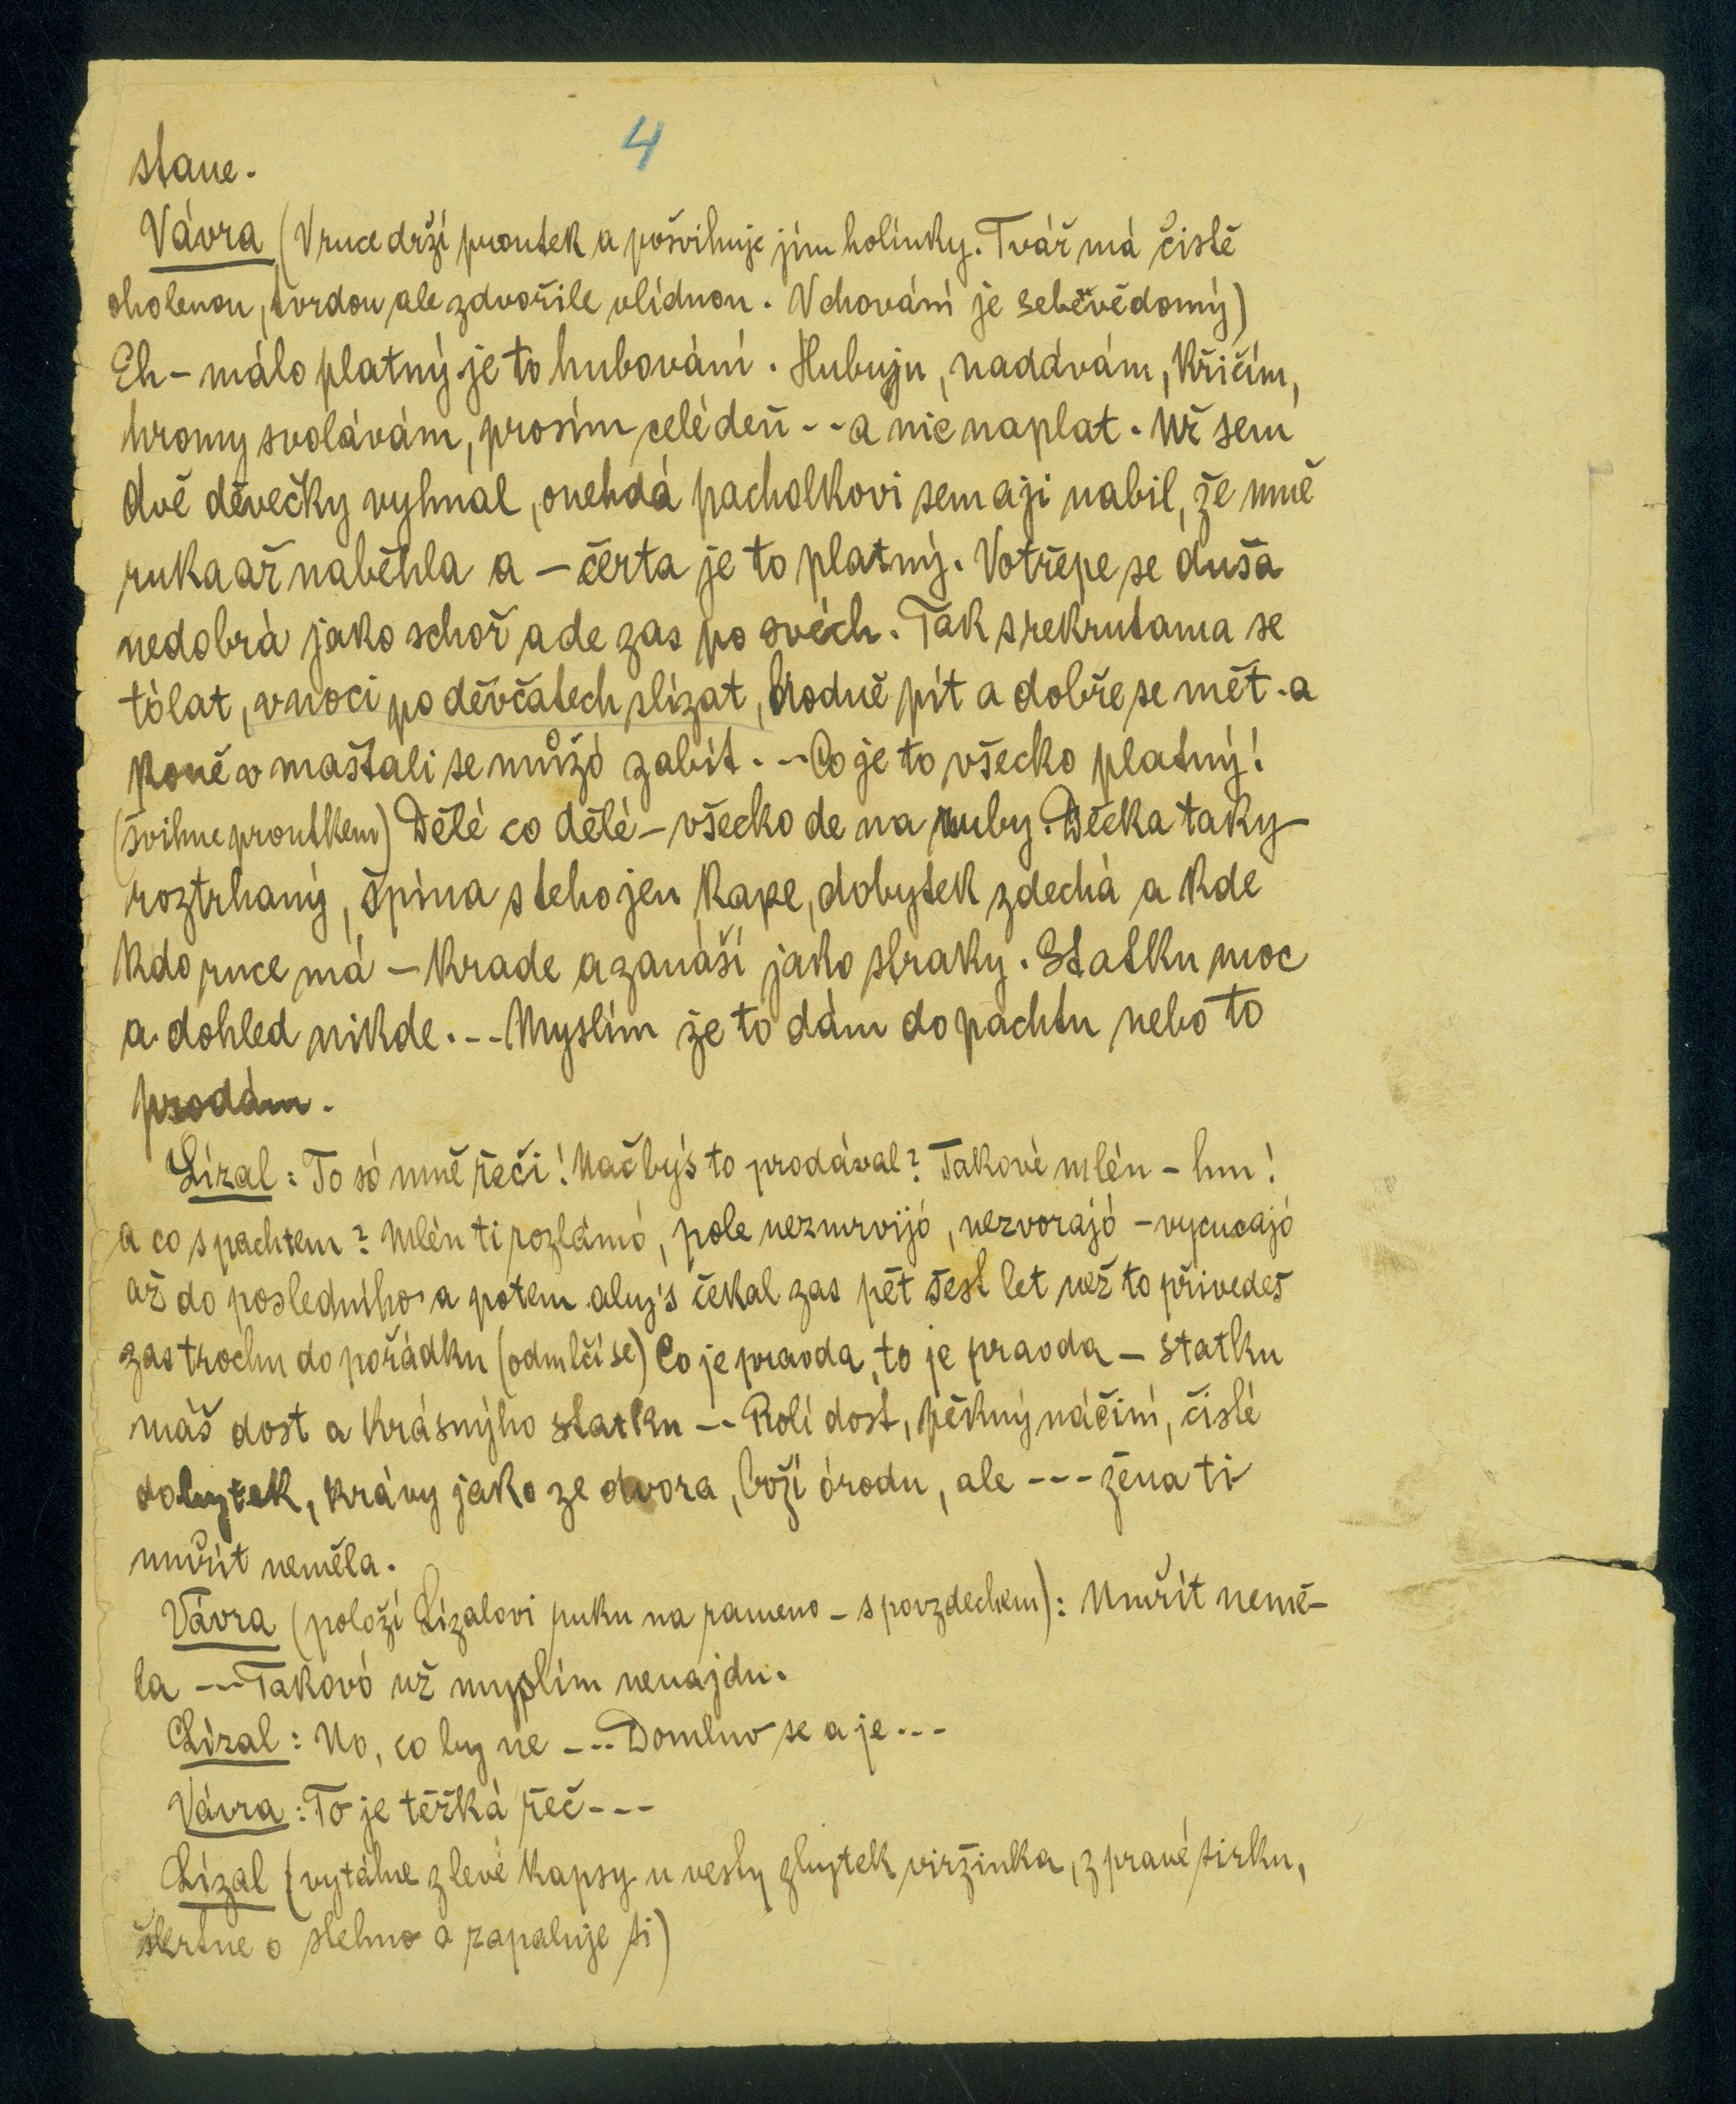 4
stane.
Vávra (V ruce drží proutek a pošvihuje jím holínky. Tvář má čistě
oholenou, tvrdou ale zdvořile vlídnou. V chování je seběvědomý)
Eh – málo platný je to hubování. Hubuju, naddávám, křičím,
hromy svolávám, prosím celé deň -- a nic naplat. Už sem
dvě děvečky vyhnal, onehdá pacholkovi sem aji nabil, že mně
ruka až naběhla a – čerta je to platný. Votřepe se duša
nedobrá jako schoř a de zas po svéch. Tak s rekrutama se
tólat, v noci po děvčatech slízat, hodně pít a dobře se mět - a
koně v maštali se můžó zabít. -- Co je to všecko platný!
(švihne proutkem) Dělé co dělé – všecko de na ruby. Děcka taky
roztrhaný, špína s teho jen kape, dobytek zdechá a kde
kdo ruce má – krade a zanáší jako straky. Statku moc
a dohled nikde. -- Myslím že to dám do pachtu nebo to
prodám.
Lízal: To só mně řeči! Nač bys to prodával? Takové mlén – hm!
a co s pachtem? Mlén ti rozlámó, pole nezmrvijó, nezvorajó – vycucajó
až do posledního a potem aby's čekal zas pět šest let než to přivedeš
zas trochu do pořádku (odmlčí se) Co je pravda, to je pravda – statku
máš dost a krásnýho statku -- Rolí dost, pěkný náčiní, čisté
dobytek, krávy jako ze dvora, boží órodu, ale --- žena ti
umřít neměla.
Vávra (položí Lízalovi ruku na rameno – s povzdechem): Umřít nemě-
la --- Takovó už myslím nenajdu.
Lízal: No, co by ne --- Domluv se a je ---
Vávra: To je těžká řeč ---
Lízal (vytáhne z levé kapsy u vesty zbytek viržinka, z pravé sirku,
škrtne o stehno a zapaluje si)